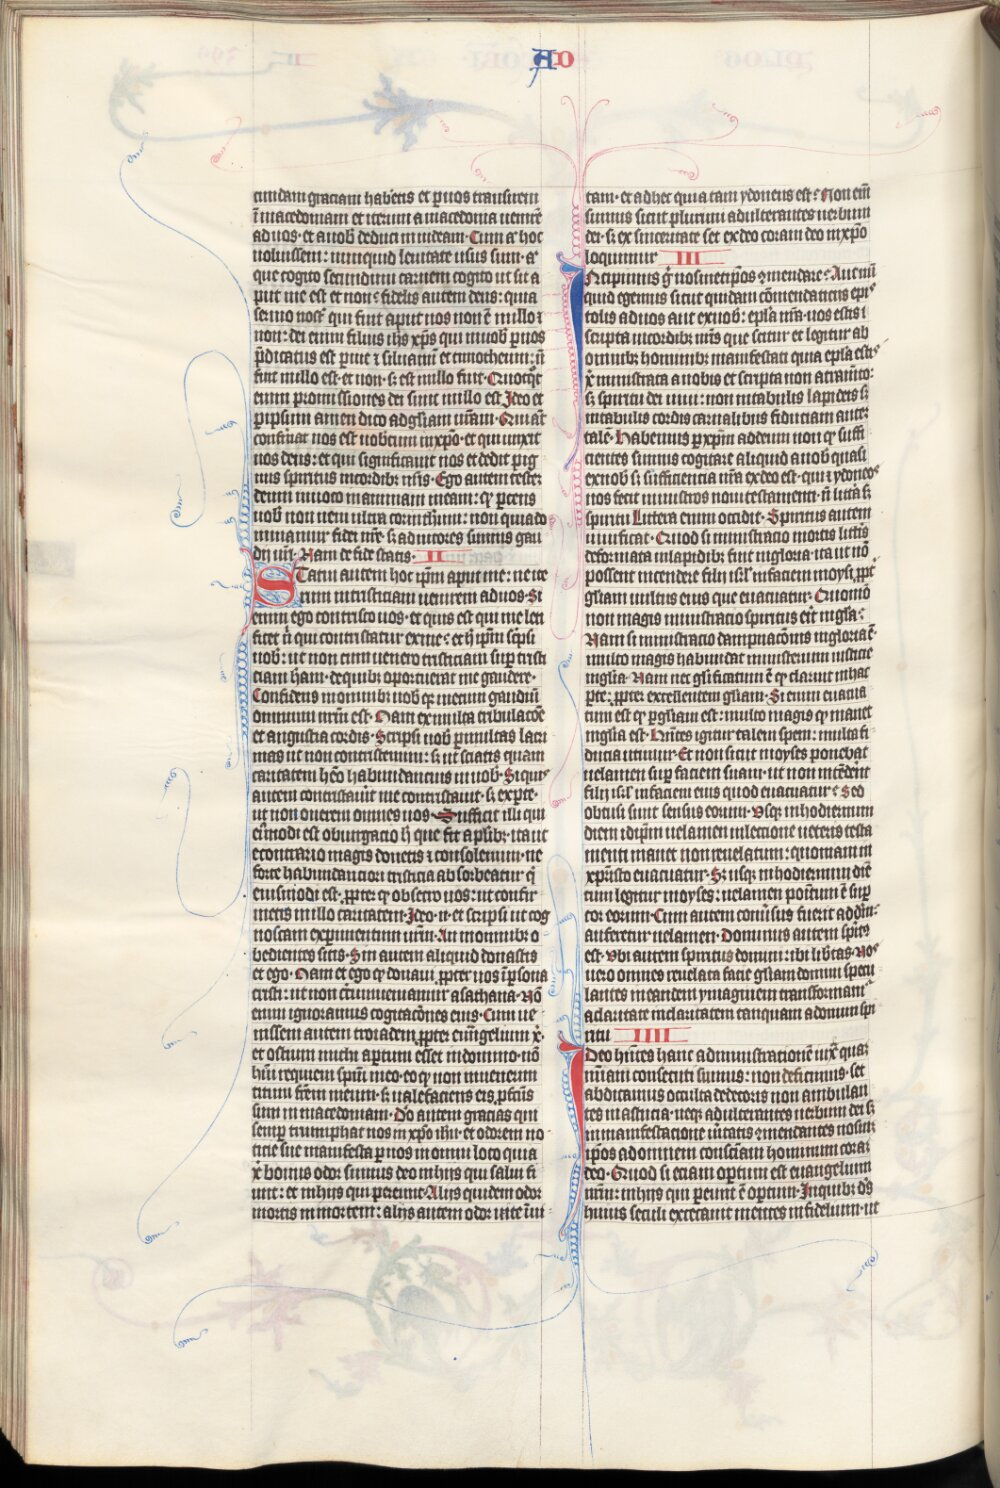 AD
cundam graciam haberetis et p uos transirem
ī macedoniam et iterum a macedonia uenire
ad uos· et a uob deduci in iudeam· Cum g hoc
uoluissem: numquid leuitate usus sum· a
que cogito secundum carnem cogito ut sit a
put me est et non ꝛ fidelis autem deus: quia
sermo nost qui fuit aput nos non ē in illo ꝛ
non· dei enim filius ihs xps qui in uob p nos
p̄dicatus est p me ꝛ siluanū et timotheum: n̄
fuit in illo est· et non· s; est in illo fuit· Quotqt
enim promissiones dei sunt in illo est Ideo et
p ipsum amen dico ad gliam nr̄am· Qui aūt
confirmat nos est uobcum in xpo· et qui unxit
nos deus: et qui significauit nos et dedit pig
nus spiritus in cordibz nr̄is· Ego autem testem
deum inuoco in animam meam: q parcens
uob non ueni ultra corinthum: non quia do
minamur fidei ur̄e s; adiutores sumus gau
dij ur̄i· Nam de fide statis· II
Statui autem hoc ipm aput me: ne ite
rum in tristiciam uenirem ad uos· Si
enim ego contristo uos· et quis est qui me leti
ficet n̄ qui contristatur ex me: et h ipm scpsi
uob: ut non cum uenero tristiciam sup tristi
ciam habeam· de quibz oportuerat me gaudere·
Confidens in omnibz uob q; meum gaudiū
omnium ur̄m est· Nam ex multa tribulacōe
et angustia cordis· Scripsi uob p multas lacri
mas ut non contristemini: s; ut sciatis quam
caritatem hēo habundancius in uob· Si quis
autem contristauit me contristauit· s; ex pte·
ut non onerem omnes uos· Sufficit illi qui
eiusmodi est obiurgacio h que fit a plibz· ita ut
econtrario magis donetis ꝛ consolemini· ne
forte habundanciori tristicia absorbeatur q
eiusmodi est· ppter q obsecro uos: ut confir
metis in illo caritatem· Ideo n· et scripsi ut cog
noscam experimentum ur̄m· An in omnibz o
bedientes sitis· Sin autem aliquid donastis
et ego· Nam et ego q donaui ppter uos ī psona
cristi: ut non circumueniamur a sathana· Nō
enim ignoramus cogitacōnes eius· Cum ue
nissem autem troiadem ppter euu̅gelium x·
et ostium michi aptum esset in domino· nō
hūi requiem spiritui meo· eo q non inuenerim
titum frēm meum· s; ualefaciens eis pfectus
sum in macedoniam· Do autem gracias qui
semp triumphat nos in xpo ihu· et odorem no
ticie sue manifestat p nos in omni loco quia
x bonus odor sumus deo in hijs qui salui fi
unt: et in hijs qui pereunt· Alijs quidem odor
mortis in mortem: alijs autem odor uite in ui
tam· et ad hec quia tam ydoneus est: Non em
sumus sicut plurimi adulterantes uerbum
dei· s; ex sinceritate set ex deo coram deo in xpo
loquimur III
Incipimus g nosmetipsos ꝯmendare: Aut nū
quid egemus sicut quidam cōmendaticijs epi
stolis ad uos aut ex uob: epla nr̄a· uos estis ī
scripta in cordibz nr̄is que scitur et legitur ab
omnibz hominibz manifestati quia epla estis
x ministrata a nobis et scripta non atramento:
s; spiritu dei uiui: non in tabulis lapideis s;
in tabulis cordis carnalibus fiduciam autem
talē· Habemus p xpm ad deum non q suffi
cientes simus cogitare aliquid a nob quasi
ex nob s; sufficiencia nr̄a ex deo est· qui ꝛ ydoneos
nos fecit ministros noui testamenti· n̄ littera s;
spiritu Littera enim occidit· Spiritus autem
uiuificat· Quod si ministracio mortis littris
deformata in lapidibz fuit in gloria· ita ut nō
possent intendere filij isrl in faciem moysi ppt
gliam uultus eius que euacuatur· Quomō
non magis ministracio spiritus erit in glia·
Nam si ministracio dampnacōnis in gloria ē·
multo magis habundat ministerium iusticie
in glia· Nam nec glificatum ē q claruit in hac
pte: ppter excellentem gliam· Si enim euacua
tum est q p gliam est: multo magis q manet
in glia est· Hn̄tes igitur talem spem: multa fi
ducia utimur· Et non sicut moyses ponebat
uelamen sup faciem suam· ut non intēderent
filij isrl in faciem eius quod euacuatur ꝛ Sed
obtusi sunt sensus eorum· Usq; in hodiernum
diem idipm uelamen in lectione ueteris testa
menti manet non reuelatum: quoniam in
xpisto euacuatur· S; usq; in hodiernum diē
cum legitur moyses: uelamen positum ē sup
cor eorum· Cum autem conuersus fuerit ad dn̄m:
auferetur uelamen· Dominus autem spirit
est· Ubi autem spiritus domini: ibi libertas· Nos
uero omnes reuelata facie gliam domini specu
lantes in eandem ymaginem transformam
a claritate in claritatem tanquam a domini spi
ritu IIII
Ideo hn̄tes hanc administrationē iuxta quam
m̄iam consecuti sumus: non deficimus· set
abdicamus occulta dedecoris non ambulan
tes in astucia· neq; adulterantes uerbum dei s;
in manifestacione ueritatis ꝯmendantes nosmet
ipos ad omnem consciam hominum coram
deo· Quod si eciam optum est euangelium
nr̄m: in hijs qui pereunt ē opertum· In quibz ds
huius seculi excecauit mentes infidelium· ut